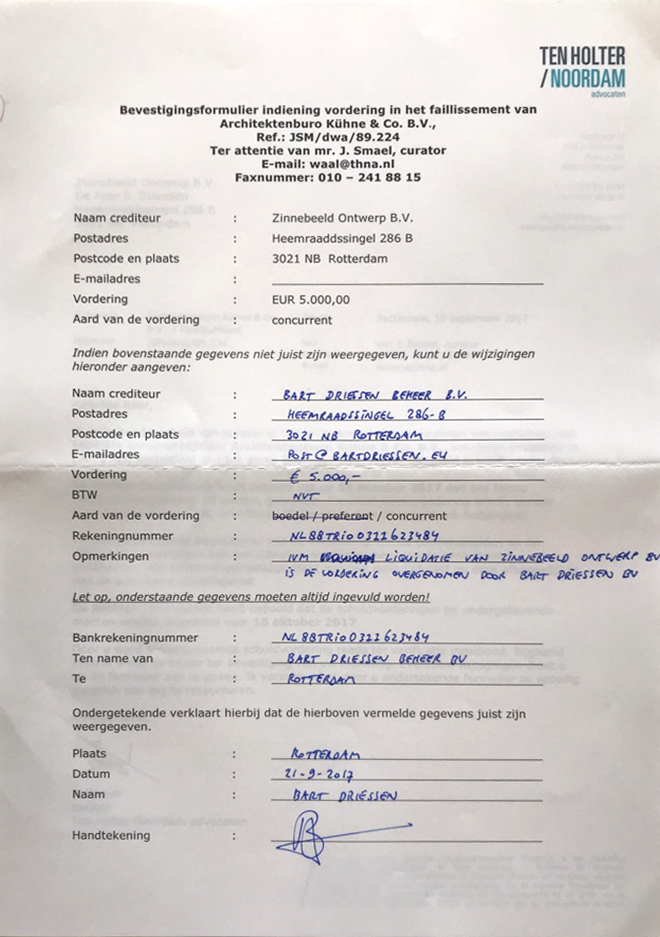 TEN HOLTER
/NOORDAM
advocaten
Bevestigingsformulier indiening vordering in het faillissement van
Architektenburo Kühne & Co. B.V.,
Ref.: JSM/dwa/89.224
Ter attentie van mr. J. Smael, curator
E-mail: waal@thna.nl
Faxnummer: 010 – 241 88 15
Naam crediteur : Zinnebeeld Ontwerp B.V.
Postadres : Heemraaddssingel 286 B
Postcode en plaats : 3021 NB Rotterdam
E-mailadres :
Vordering : EUR 5.000,00
Aard van de vordering : concurrent
Indien bovenstaande gegevens niet juist zijn weergegeven, kunt u de wijzigingen
hieronder aangeven:
Naam crediteur : BART DRIESSEN BEHEER B.V.
Postadres : HEEMRAADSSINGEL 286-B
Postcode en plaats : 3021 NB ROTTERDAM
E-mailadres : POST@BARTDRIESSEN.EU
Vordering : € 5.000,-
BTW : NVT
Aard van de vordering : boedel / preferent / concurrent
Rekeningnummer : NL88TRIO0321623484
Opmerkingen : IVM LIQUIDATIE VAN ZINNEBEELD ONTWERP BV
IS DE VORDERING OVERGENOMEN DOOR BART DRIESSEN BV
Let op, onderstaande gegevens moeten altijd ingevuld worden!
Bankrekeningnummer : NL88TRIO0321623484
Ten name van : BART DRIESSEN BEHEER BV
Te : ROTTERDAM
Ondergetekende verklaart hierbij dat de hierboven vermelde gegevens juist zijn
weergegeven.
Plaats : ROTTERDAM
Datum : 21-9-2017
Naam : BART DRIESSEN
Handtekening :